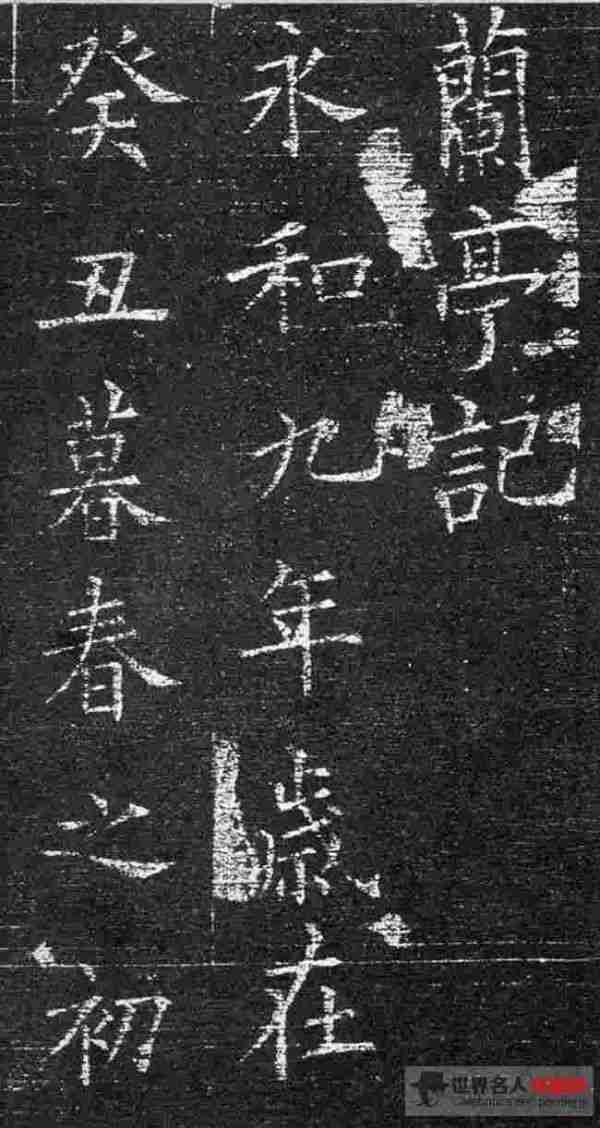 蘭亭記
永和九年歲在
癸丑暮春之初
世界名人